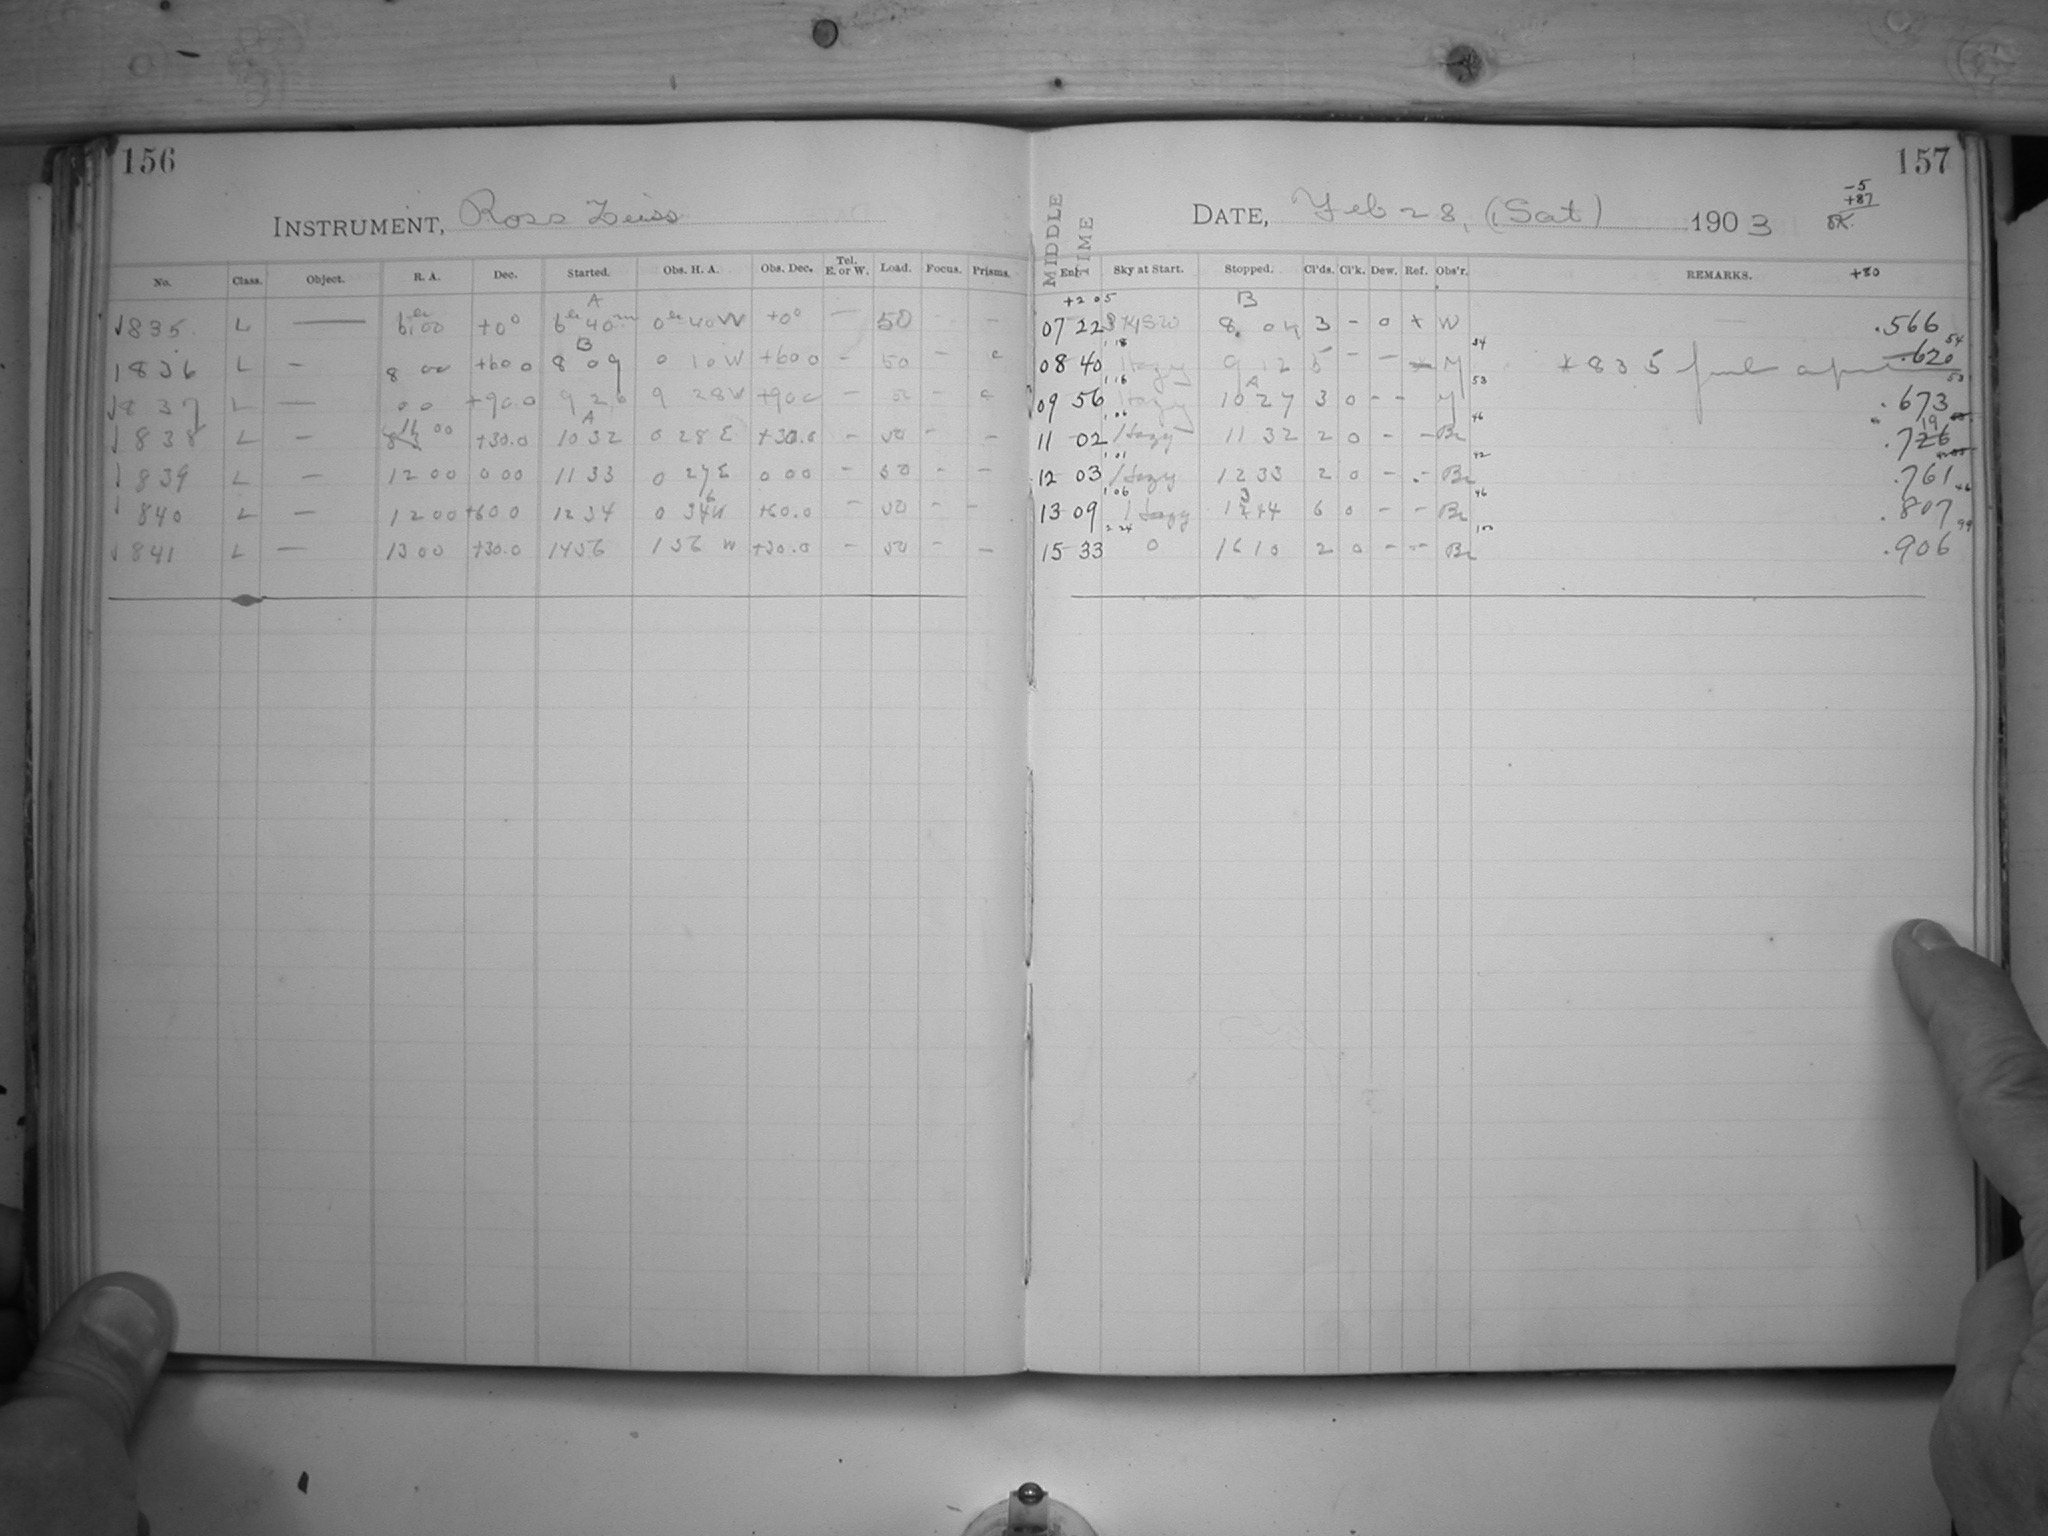 156
INSTRUMENT, Ross Zeiss
No. Class. Object. R. A. Dec. Started. Obs. H. A. Obs. Dec. Tel. E. or W. Load. Focus. Prisms.
A
835. L — 6h 00 +0° 6h 40m 0h 40 W +0° — 50 - -
B
836 L — 8 00 +60 0 8 09 0 10 W +60 0 - 50 -
837 L — 0 0 +90.0 9 26 9 28 W +90 0 —
A
838 L — 11 00 +30.0 10 32 0 28 E +30.0 — 50 - -
839 L — 12 00 0 00 11 33 0 27 E 0 00 - 50 - -
840 L — 12 00 +60 0 12 34 0 34 +60.0 - 50 - -
841 L — 13 00 +30.0 14 56 1 56 W +30.0 - 50 - -
157
-5
+87
MIDDLE TIME
DATE, Feb 28, (Sat) 1903
Ent. Sky at Start. Stopped. Cl'ds. Cl'k. Dew. Ref. Obs'r. REMARKS. +80
+2 05 B
07 22 8 04 3 - 0 + W .566
1 18 54 54
08 40 Hazy 9 12 5 - - Y *835 .620
1 16 A 53 53
09 56 Hazy 10 27 3 0 - - Y .673
1 06 46 19
11 02 Hazy 11 32 2 0 - - Br .726
1 01 42
12 03 Hazy 12 33 2 0 - - Br .761
1 06 46 46
13 09 Hazy 44 6 0 - - Br .807
2 24 100 99
15 33 0 16 10 2 0 - - Br .906